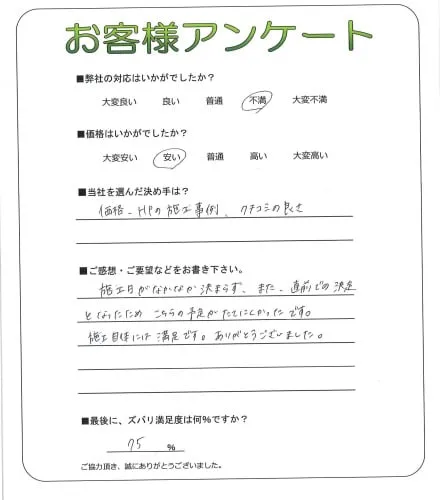 お客様アンケート
■弊社の対応はいかがでしたか？
大変良い 良い 普通 不満 大変不満
■価格はいかがでしたか？
大変安い 安い 普通 高い 大変高い
■当社を選んだ決め手は？
価格、HPの施工事例、クチコミの良さ
■ご感想・ご要望などをお書き下さい。
施工日がなかなか決まらず、また、直前での決定
となったため こちらの予定がたてにくかったです。
施工自体には満足です。ありがとうございました。
■最後に、ズバリ満足度は何%ですか？
75 %
ご協力頂き、誠にありがとうございました。